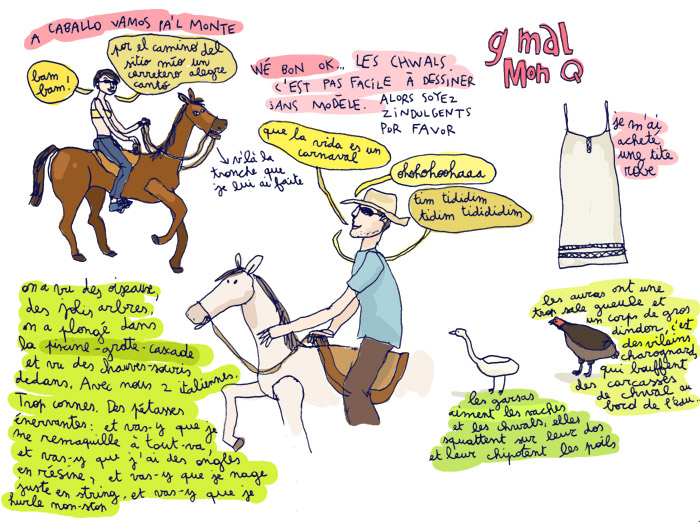 A CABALLO VAMOS PA'L MONTE
bam
bam!
por el camino del
sitio mío un
carretero alegre
cantó
WÉ BON OK... LES CHWALS.
C'EST PAS FACILE À DESSINER
SANS MODÈLE. ALORS SOYEZ
ZINDULGENTS
POR FAVOR
g mal
Mon Q
je m'ai
acheté
une tite
robe
v'là la
tronche que
je lui ai faite
que la vida es un
carnaval
ohohohoohaaa
tim tididim
tidim tidididim
on a vu des oiseaux,
des jolis arbres,
on a plongé dans
la piscine-grotte-cascade
et vu des chauves-souris
dedans. Avec nous 2 italiennes.
Trop connes. Des pétasses
énervantes: et vas-y que je
me remaquille à tout-va,
et vas-y que j'ai des ongles
en résine, et vas-y que je nage
juste en string, et vas-y que je
hurle non-stop
les garsas
aiment les vaches
et les chwals, elles
squattent sur leur dos
et leur chipotent les poils
les auras ont une
trop sale gueule et
un corps de gros
dindon, c'est
des vilains
charognards
qui bouffent
des carcasses
de chwal au
bord de l'édu...